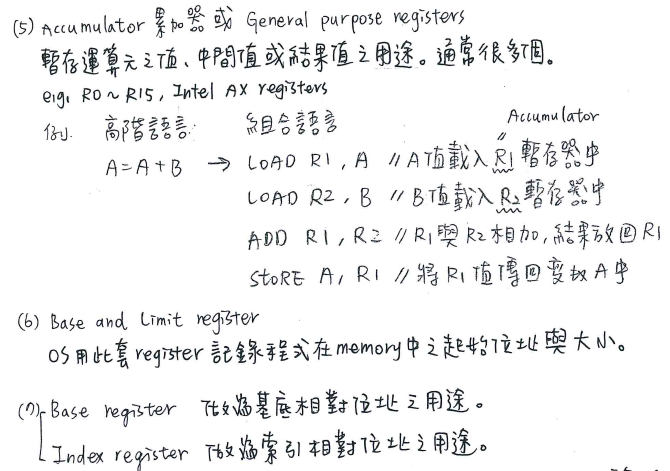 (5) Accumulator 累加器 或 General purpose registers
暫存運算元之值、中間值或結果值之用途。通常很多個。
e.g. R0~R15, Intel AX registers
例. 高階語言: 組合語言 Accumulator
A=A+B → LOAD R1, A // A值載入R1暫存器中
LOAD R2, B // B值載入R2暫存器中
ADD R1, R2 // R1與R2相加,結果放回R1
STORE A, R1 // 將R1值傳回變數A中
(6) Base and Limit register
OS用此套register記錄程式在memory中之起始位址與大小。
(7) Base register 做為基底相對位址之用途。
Index register 做為索引相對位址之用途。